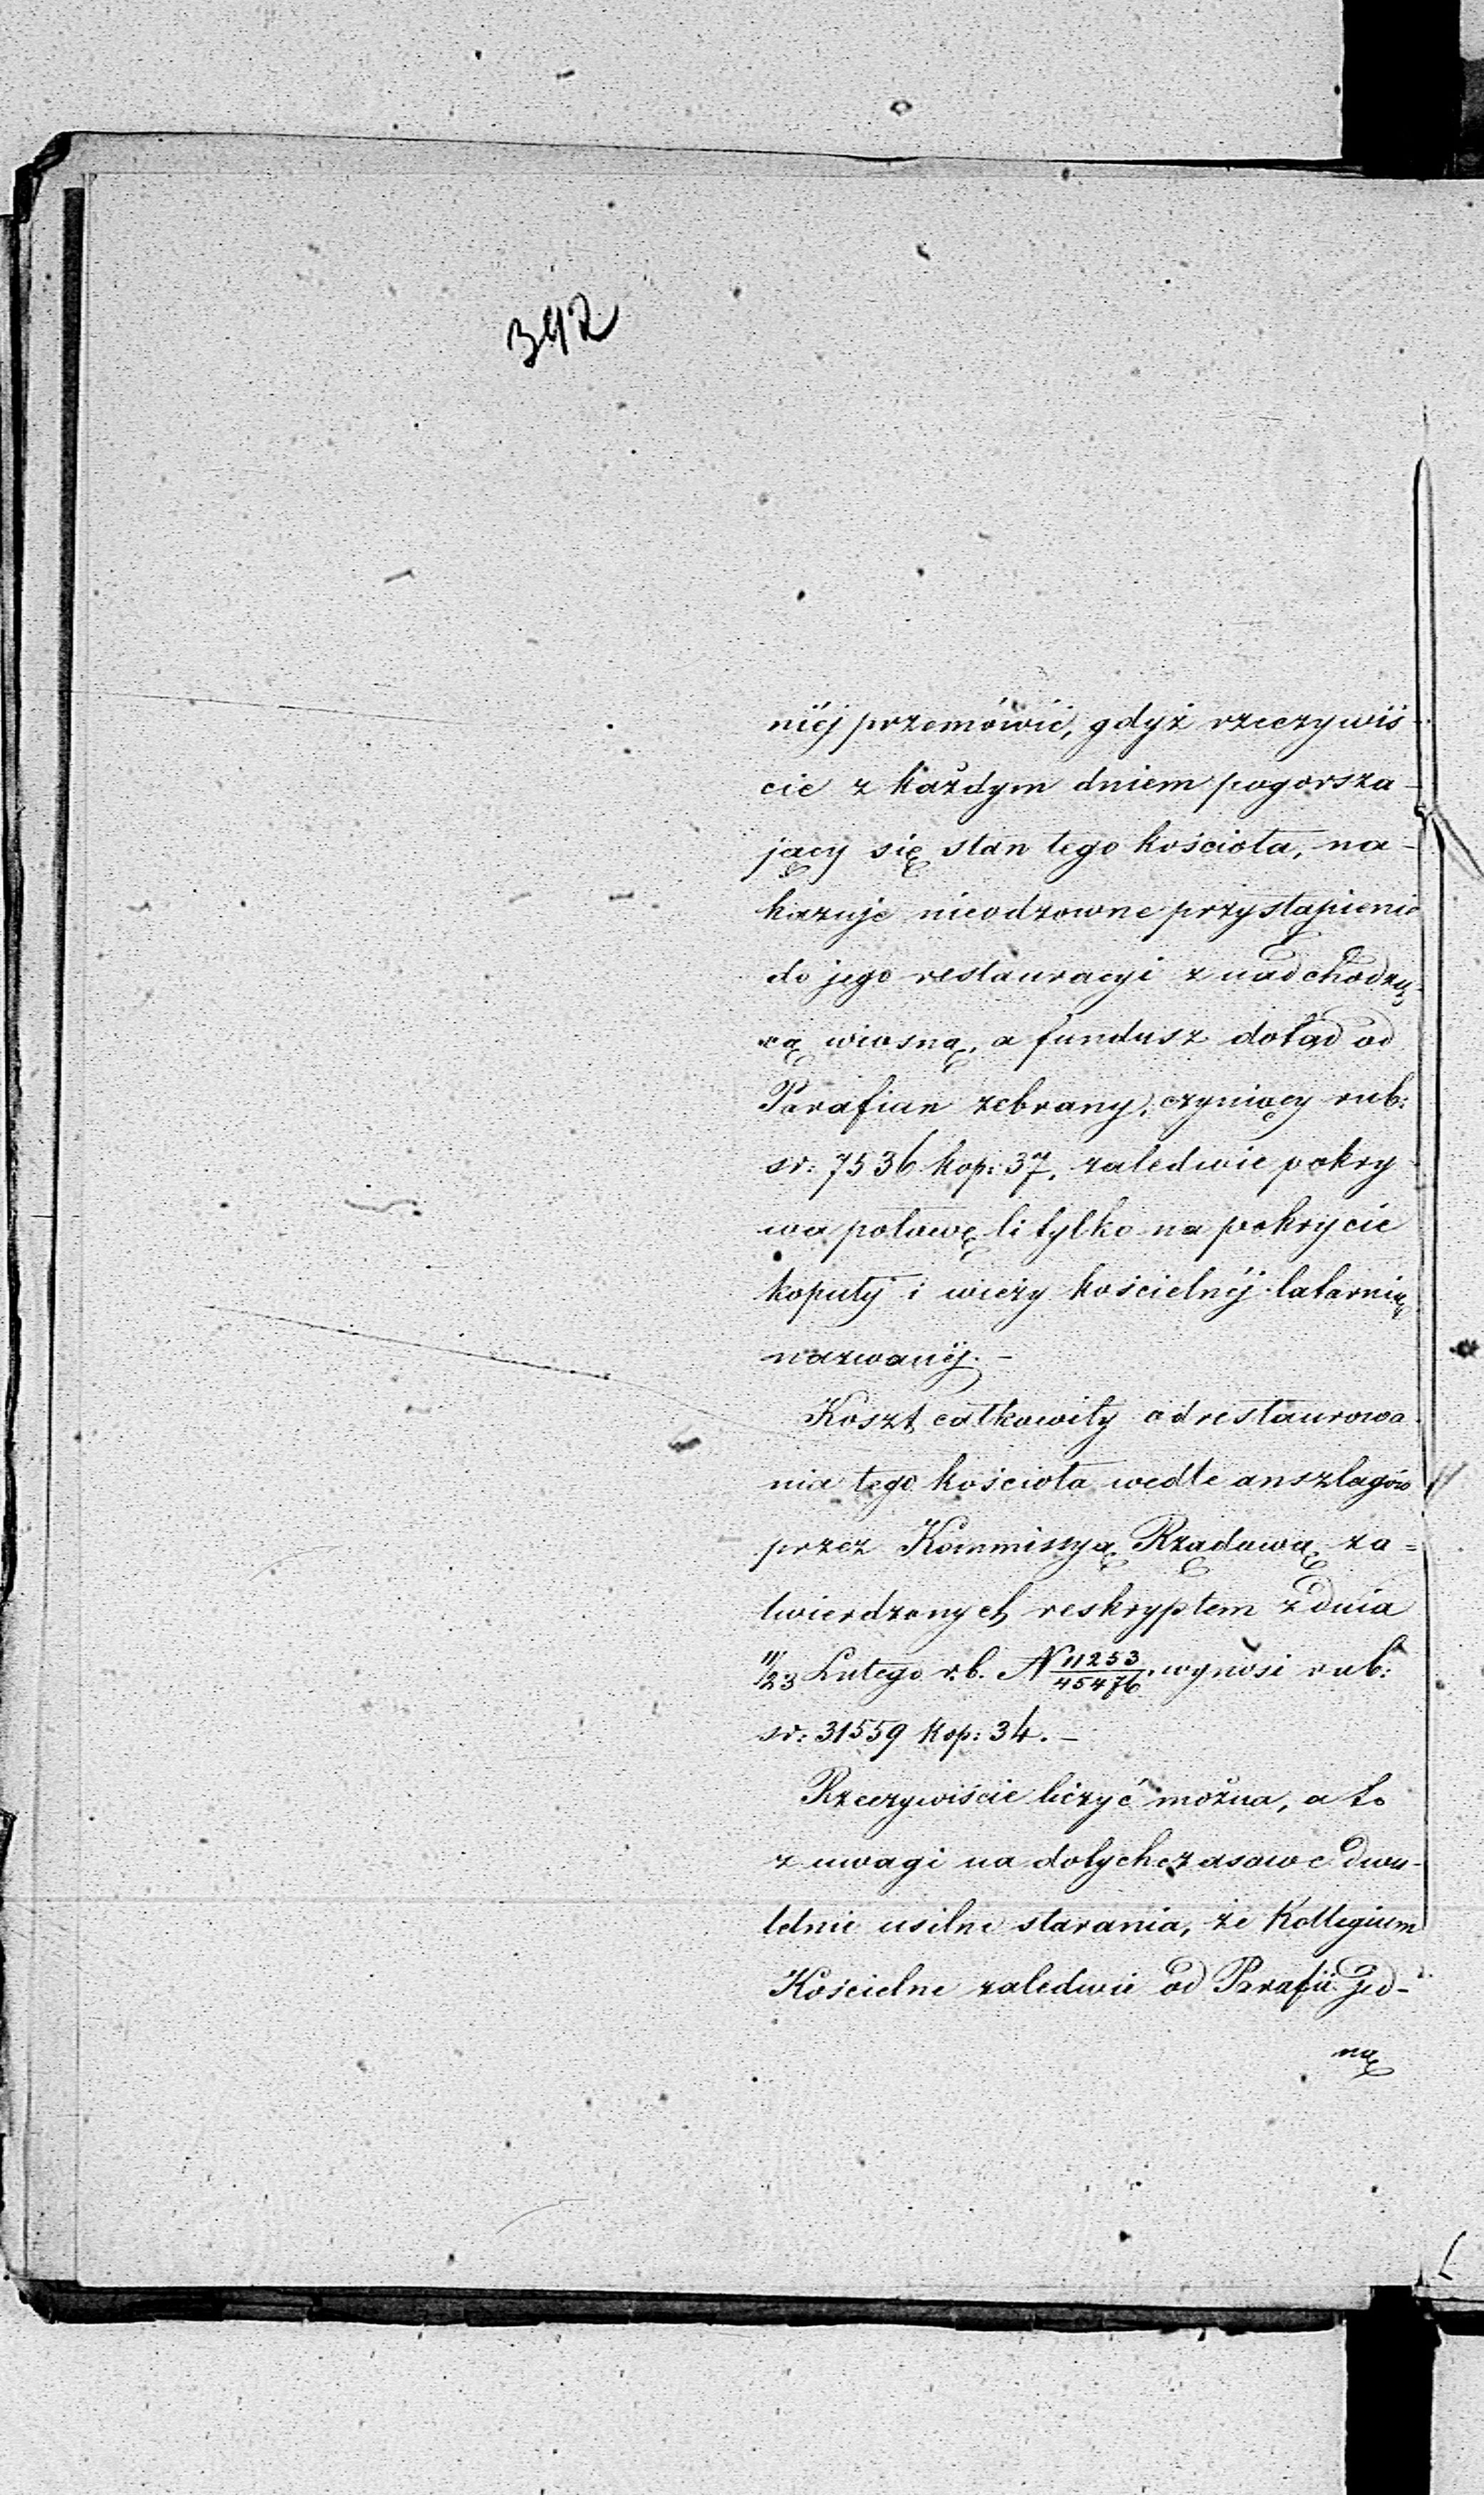 342
niéj przemówić, gdyż rzeczywiś-
cie z każdym dniem pogorsza-
jący się stan tego kościoła, na-
kazuje nieodzowne przystąpienie
do jego restauracyi z nadchodzą-
cą wiosną, a fundusz dotąd od
Parafian zebrany, czyniący rub:
sr: 7536 kop: 37, zaledwie pokry
wa połowę li tylko na pokrycie
kopuły i wieży kościelnéj latarnią
nazwanéj. –
Koszt całkowity odrestaurowa
nia tego kościoła wedle anszlagów
przez Kommissyą Rządową za=
twierdzonych reskryptem z dnia
11/23 Lutego r.b. N 11253/45476 wynosi rub:
sr: 31559 kop: 34. –
Rzeczywiście liczyć można, a to
z uwagi na dotychczasowe dwu-
letnie usilne starania, że Kollegium
Kościelne zaledwie od Parafii jed-
ną